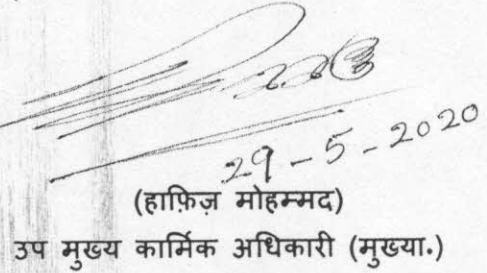 29-5-2020
(हाफ़िज़ मोहम्मद)
उप मुख्य कार्मिक अधिकारी (मुख्या.)